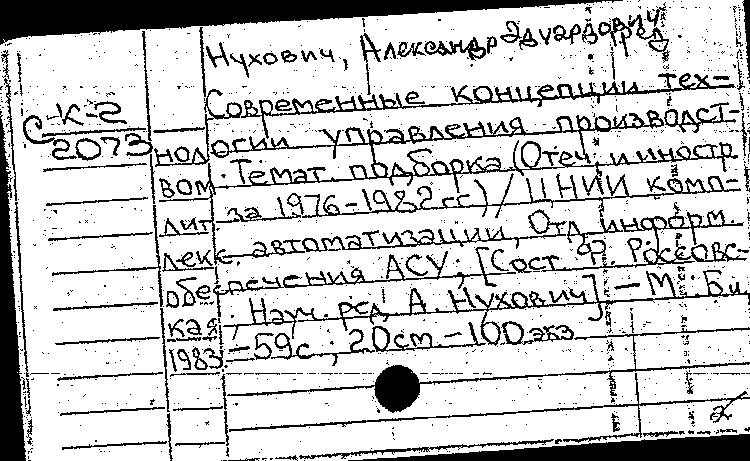 Нухович, Александр Эдуардович
ред.
С К-2
2073
Современные концепции тех-
нологии управления производст-
вом: Темат. подборка (Отеч. и иностр
лит за 1976-1982 гг) / ЦНИИ комп-
лекс. автоматизации, Отд. информ.
обеспечения АСУ; [Сост. Ф. Россовс-
кая; Науч. ред А. Нухович]. - М: Б.и,
1983 - 59с; 20см - 100 экз
2